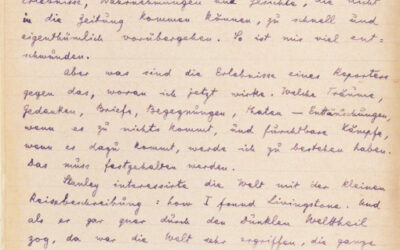 Erlebnisse, Wahrnehmungen und Gesichte, die nicht
in die Zeitung kommen können, zu schnell und
eigenthümlich vorübergehen. So ist mir viel ent-
schwunden.
Aber was sind die Erlebnisse eines Reporters
gegen das, woran ich jetzt wirke. Welche Träume,
Gedanken, Briefe, Begegnungen, Thaten — Entäuschungen,
wenn es zu nichts kommt, und furchtbare Kämpfe,
wenn es dazu kommt, werde ich zu bestehen haben.
Das muss festgehalten werden.
Stanley interessirte die Welt mit der kleinen
Reisebeschreibung: how I found Livingstone. Und
als er gar quer durch den Dunklen Welttheil
zog, da war die Welt sehr ergriffen, die ganze